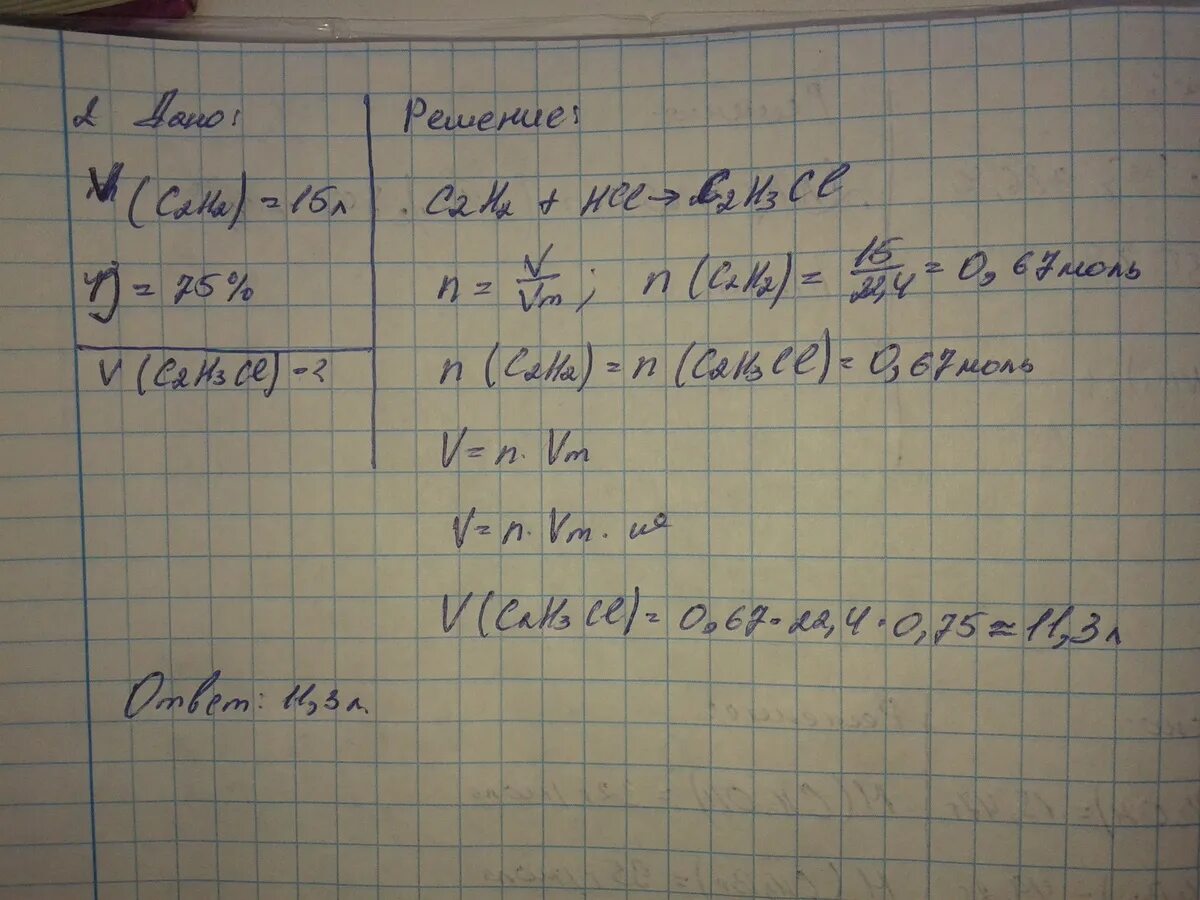 2 Дано:
V (C₂H₂) = 15л
η = 75%
V (C₂H₃Cl) - ?
Решение:
C₂H₂ + HCl → C₂H₃Cl
n = V/Vm ; n (C₂H₂) = 15/22,4 = 0,67 моль
n (C₂H₂) = n (C₂H₃Cl) = 0,67 моль
V = n · Vm
V = n · Vm ·
V (C₂H₃Cl) = 0,67 · 22,4 · 0,75 ≈ 11,3 л
Ответ: 11,3 л.